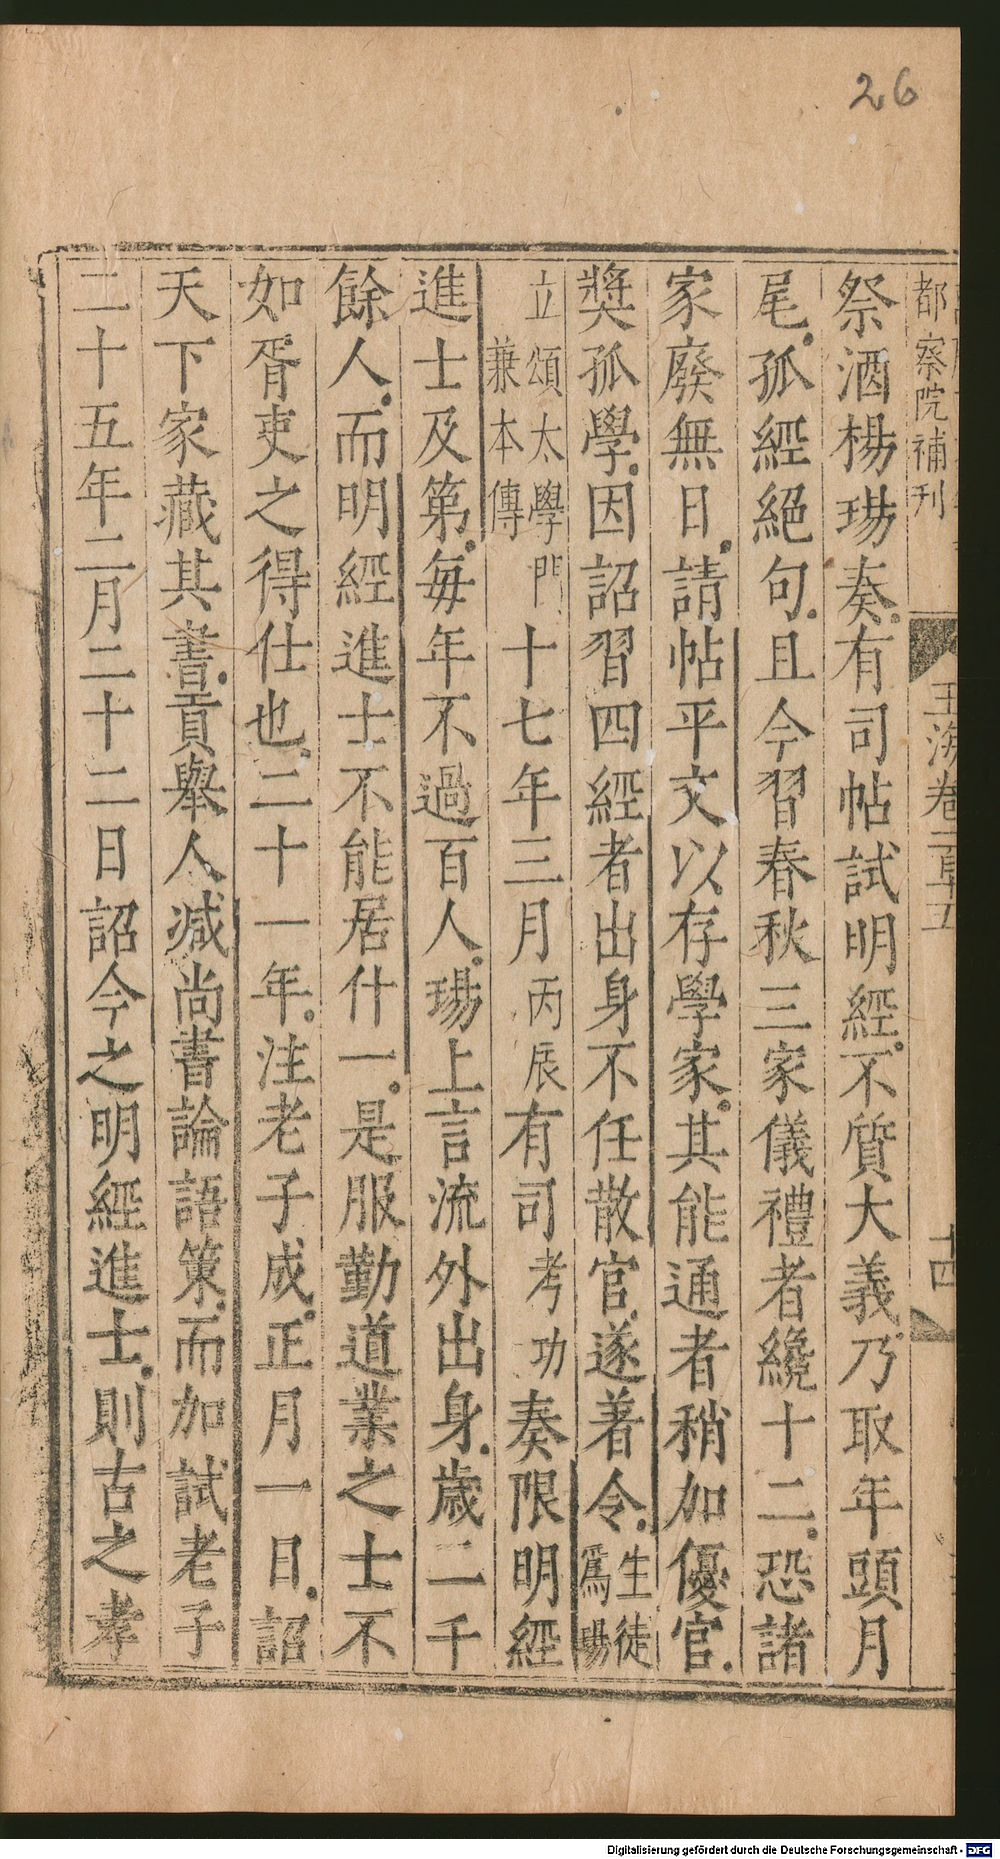 26
都察院補刊
玉海卷一百十五
十四
祭酒楊瑒奏有司帖試明經不質大義乃取年頭月
尾孤經絕句且今習春秋三家儀禮者纔十二恐諸
家廢無日請帖平文以存學家其能通者稍加優官
奬孤學因詔習四經者出身不任散官遂著令生徒爲瑒
立頌太學門兼本傳十七年三月丙辰有司考功奏限明經
進士及第每年不過百人瑒上言流外出身歲二千
餘人而明經進士不能居什一是服勤道業之士不
如胥吏之得仕也二十一年注老子成正月一日詔
天下家藏其書貢舉人减尚書論語策而加試老子
二十五年二月二十二日詔今之明經進士則古之孝
Digitalisierung gefördert durch die Deutsche Forschungsgemeinschaft - DFG